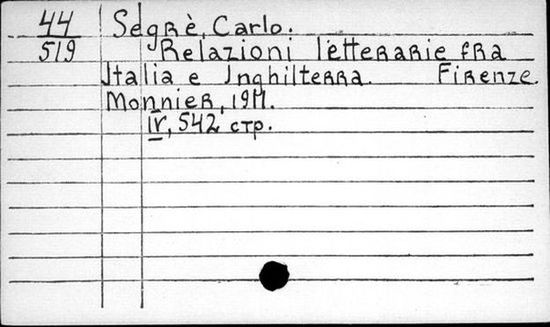 44 Segrè, Carlo.
519 Relazioni letterarie fra
Italia e Inghilterra. Firenze.
Monnier, 1911.
IV, 542 стр.